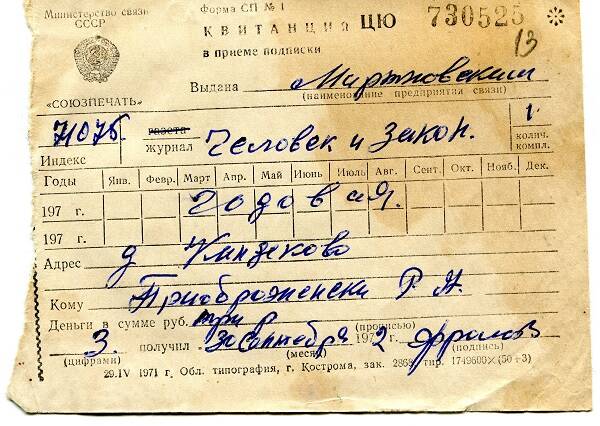 Министерство связи СССР
Форма СП № 1
КВИТАНЦИЯ ЦЮ 730525 *
в приеме подписки
13
Выдана Мартыновским
(наименование предприятия связи)
«СОЮЗПЕЧАТЬ»
71075 газета журнал Человек и закон. 1
Индекс колич. компл.
Годы Янв. Февр. Март Апр. Май Июнь Июль Авг. Сент. Окт. Нояб. Дек.
197 г. Годовая.
197 г.
Адрес д
Кому Р. Я.
Деньги в сумме руб. три р (прописью)
3. получил 30 Сентября 1972
(цифрами) (месяц) (подпись)
29.IV 1971 г. Обл. типография, г. Кострома, зак. 2868 тир. 1749600×(50+3)